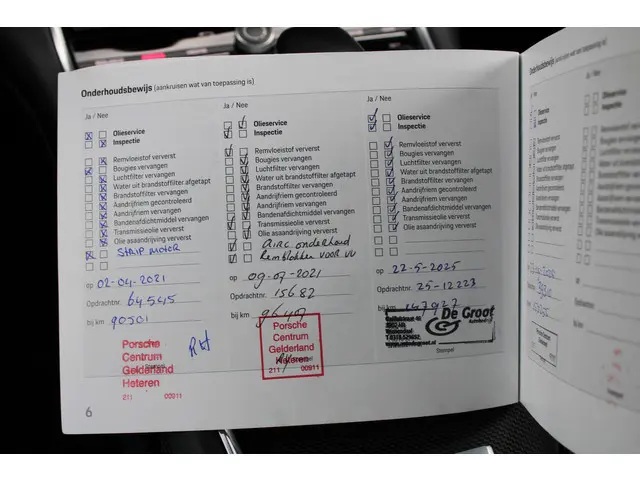 Onderhoudsbewijs (aankruisen wat van toepassing is)
Ja / Nee
Olieservice
Inspectie
Remvloeistof ververst
Bougies vervangen
Luchtfilter vervangen
Water uit brandstoffilter afgetapt
Brandstoffilter vervangen
Aandrijfriem gecontroleerd
Aandrijfriem vervangen
Bandenafdichtmiddel vervangen
Transmissieolie ververst
Olie asaandrijving ververst
STRIP MOTOR
op 02-04-2021
Opdrachtnr. 64545
bij km 90501
Porsche
Centrum
Gelderland
Heteren
211 00911
6
Ja / Nee
Olieservice
Inspectie
Remvloeistof ververst
Bougies vervangen
Luchtfilter vervangen
Water uit brandstoffilter afgetapt
Brandstoffilter vervangen
Aandrijfriem gecontroleerd
Aandrijfriem vervangen
Bandenafdichtmiddel vervangen
Transmissieolie ververst
Olie asaandrijving ververst
Airc onderhoud
Remblokken voor vv
op 09-07-2021
Opdrachtnr. 15682
bij km 96407
Porsche
Centrum
Gelderland
Heteren
211 00911
Ja / Nee
Olieservice
Inspectie
Remvloeistof ververst
Bougies vervangen
Luchtfilter vervangen
Water uit brandstoffilter afgetapt
Brandstoffilter vervangen
Aandrijfriem gecontroleerd
Aandrijfriem vervangen
Bandenafdichtmiddel vervangen
Transmissieolie ververst
Olie asaandrijving ververst
op 22-5-2025
Opdrachtnr. 25-12223
bij km 147927
De Groot
Stempel